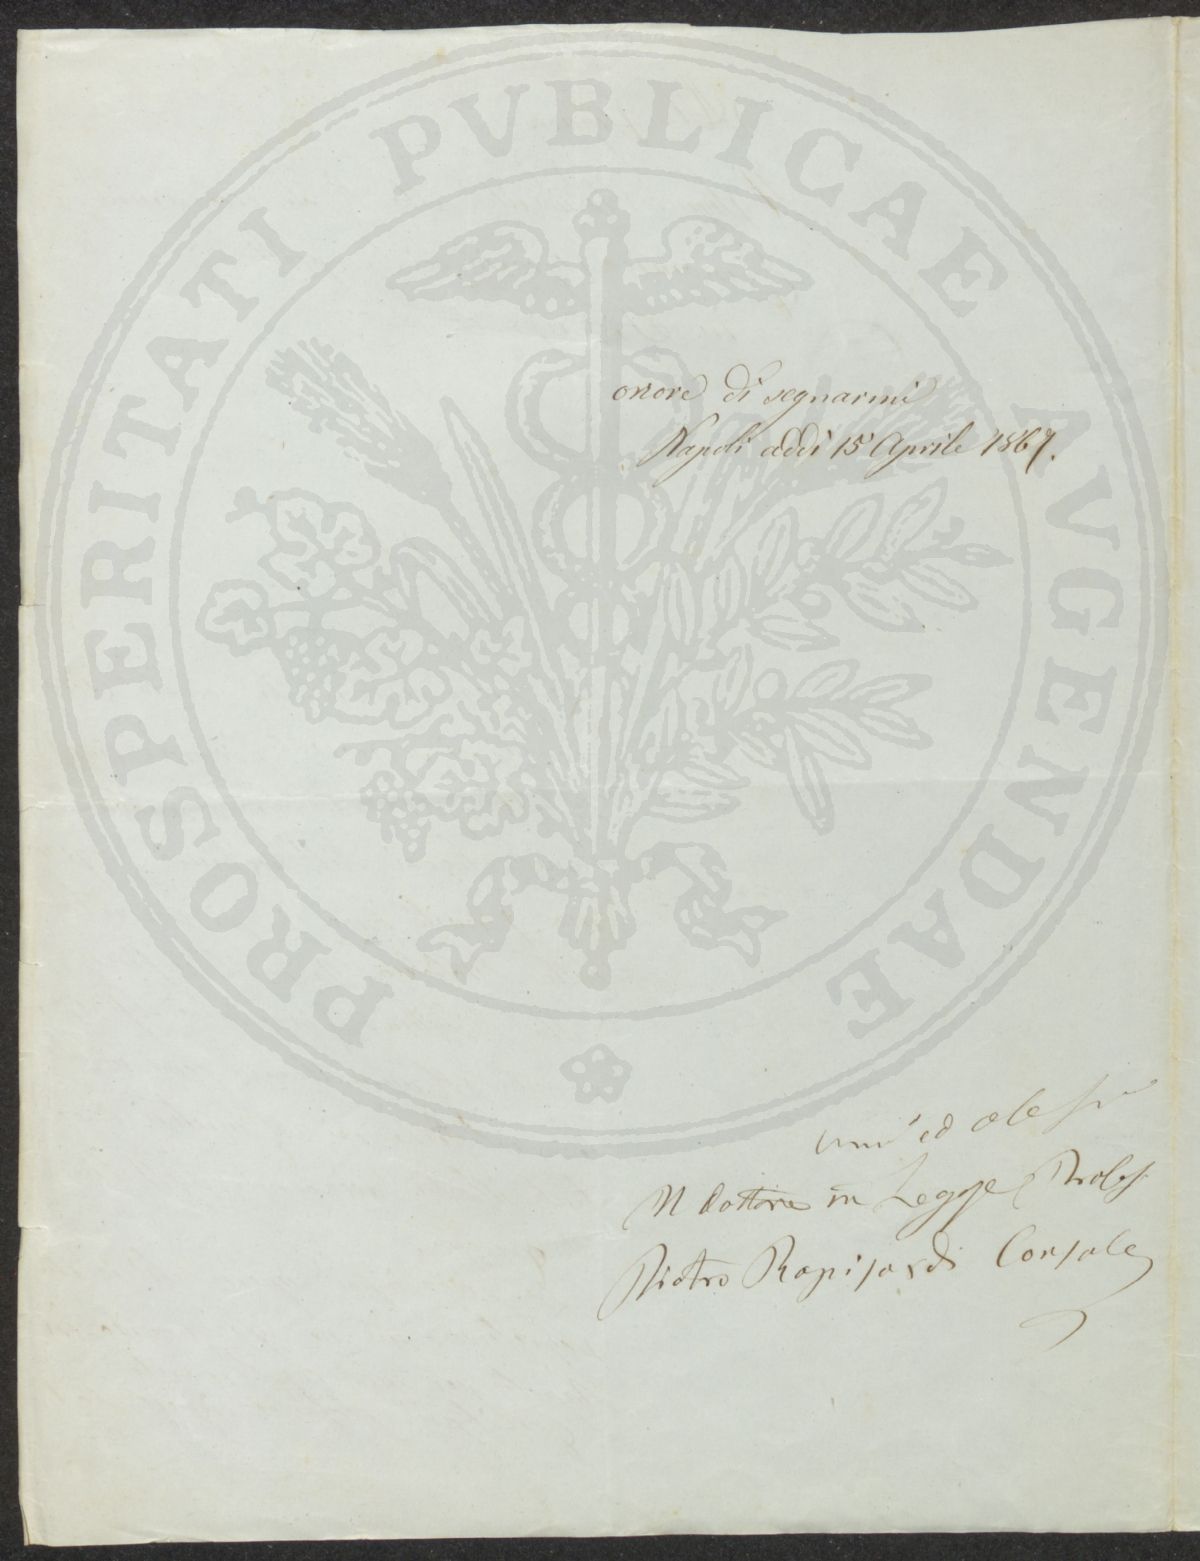 PROSPERITATI PVBLICAE AVGENDAE
onore di segnarmi
Napoli addì 15 Aprile 1867.
ed
Il Dottore in Legge
Pietro Rapisardi Consale